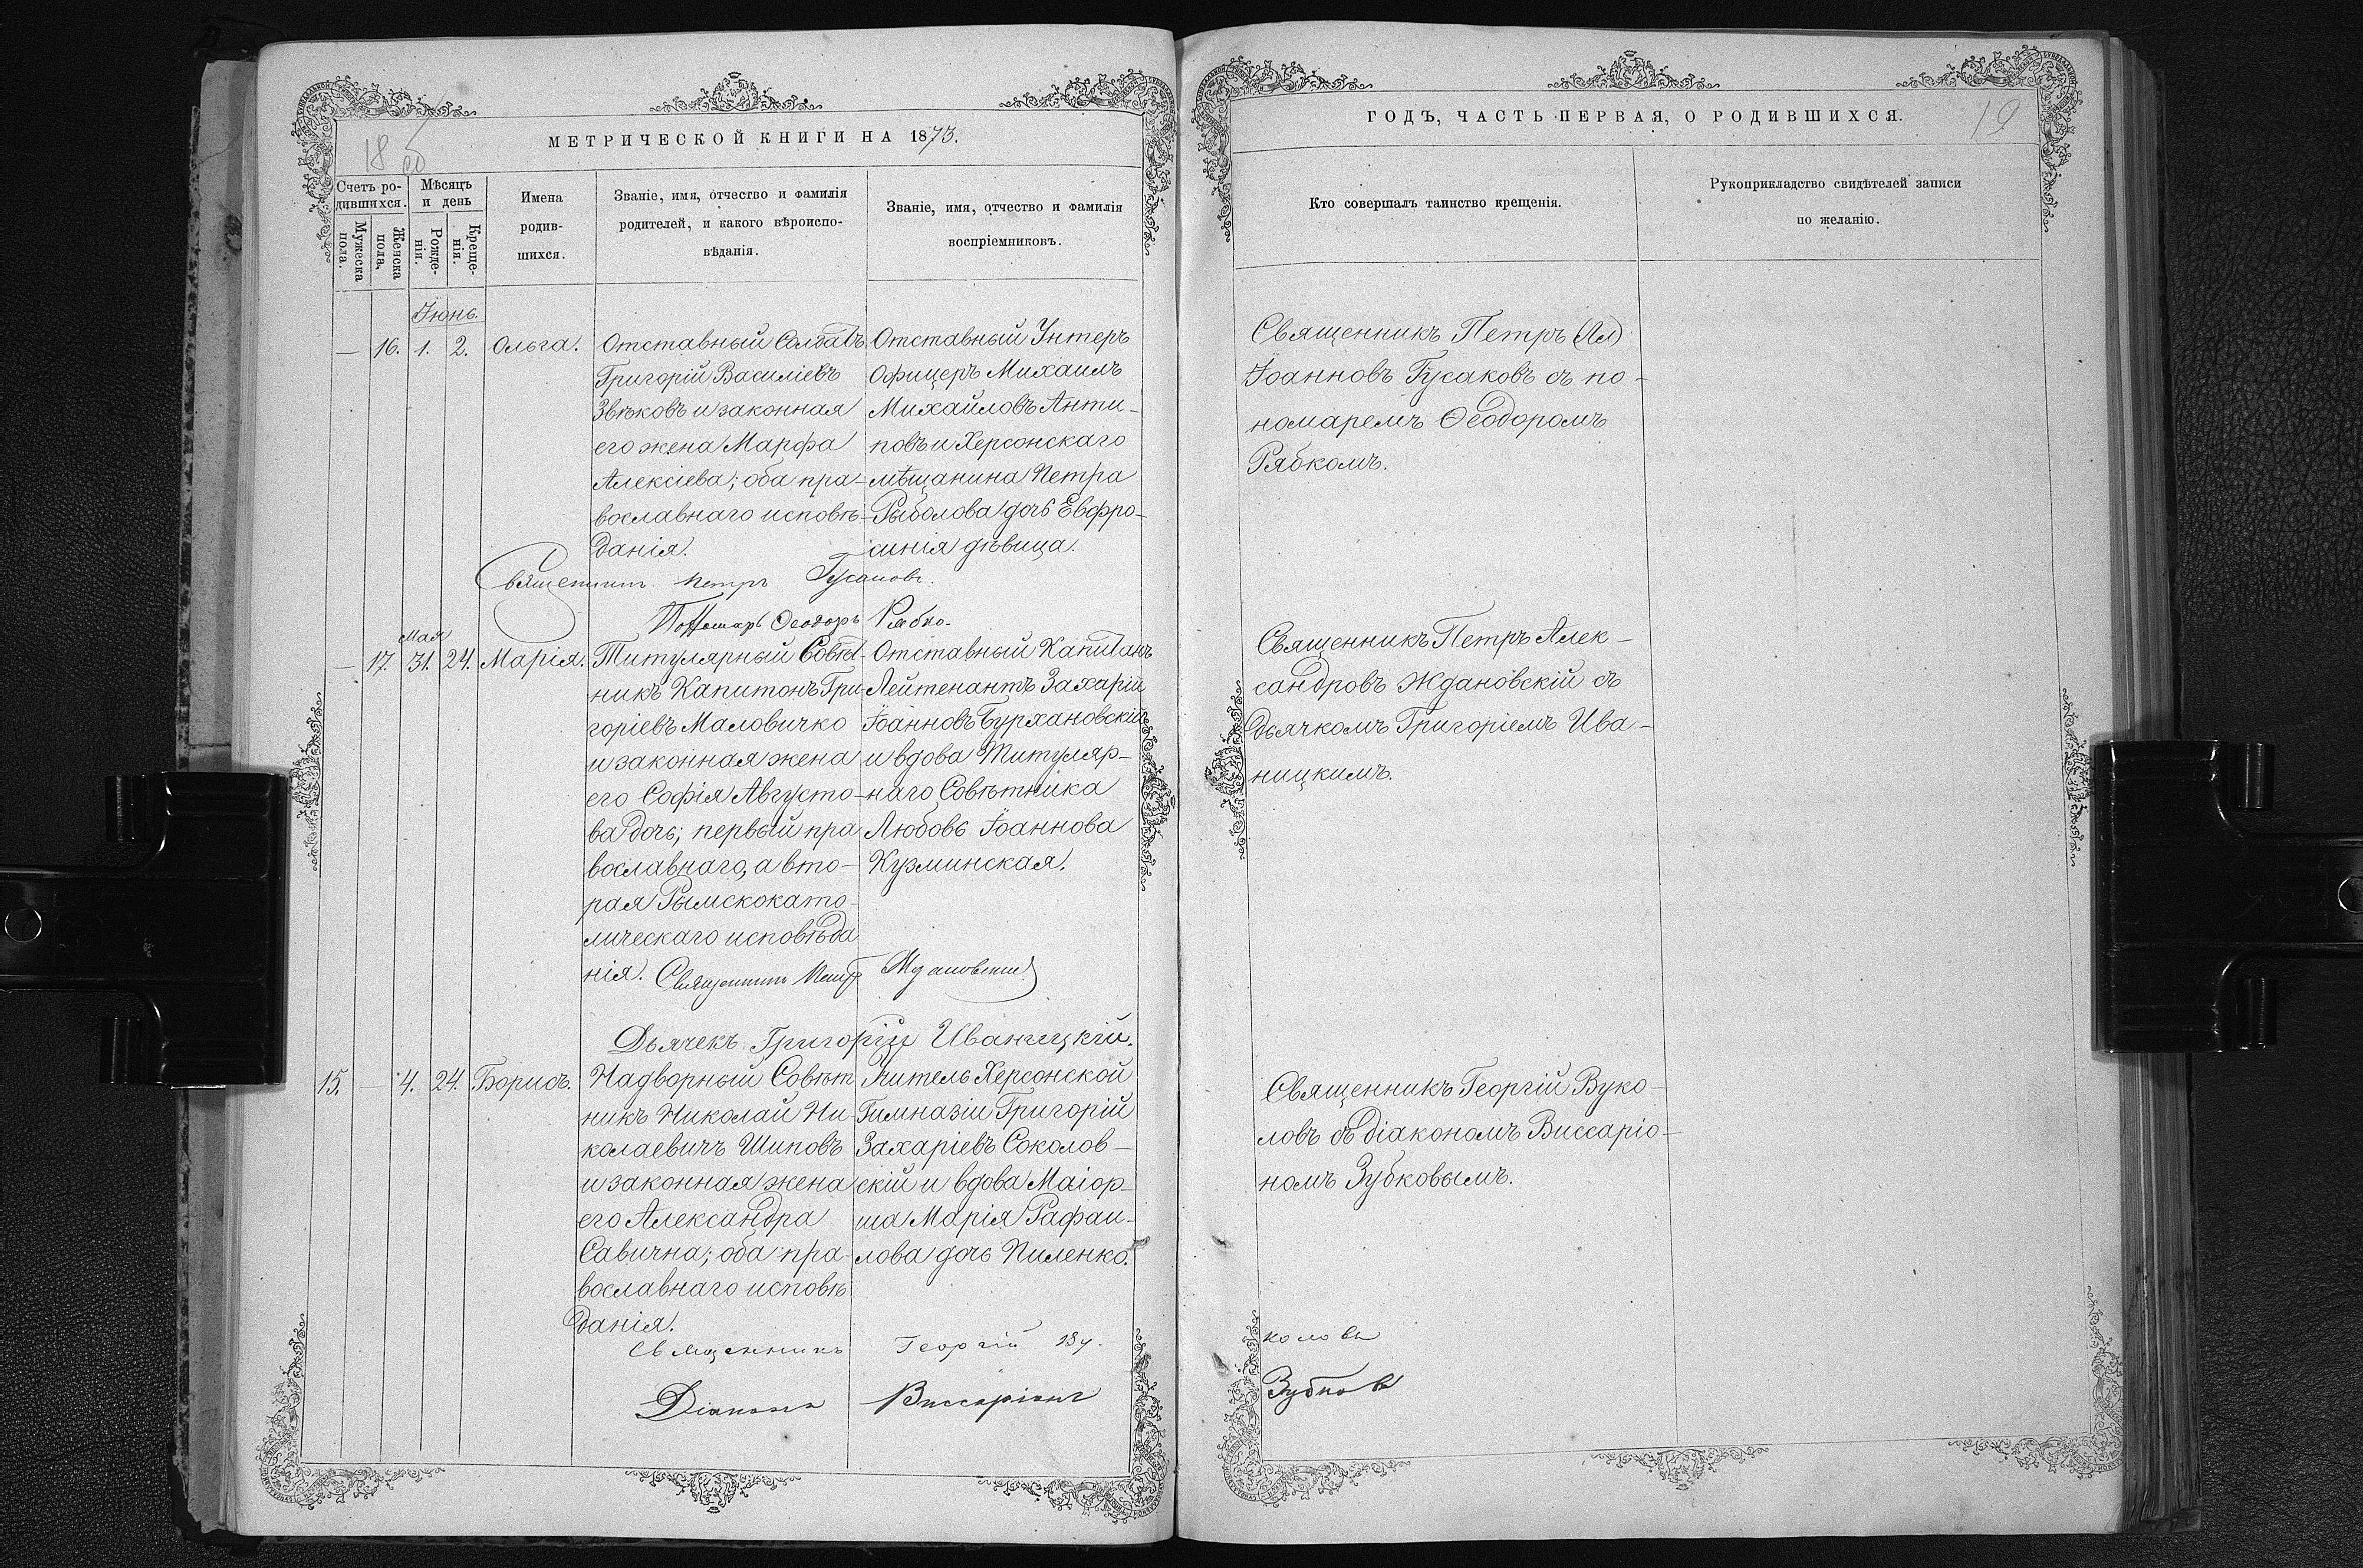 18 об
МЕТРИЧЕСКОЙ КНИГИ НА 1873.
Счетъ ро-
дившихся.
Мужеска
пола.
Женска
пола.
Мѣсяцъ
и день
Рожде-
нія.
Креще-
нія.
Имена
родив-
шихся.
Званіе, имя, отчество и фамилія
родителей, и какого вѣроиспо-
вѣданія.
Званіе, имя, отчество и фамилія
воспріемниковъ.
Іюнь.
— 16. 1. 2. Ольга.
Отставный Солдатъ
Григорій Василіевъ
Звѣковъ и законная
его жена Марфа
Алексіева; оба пра-
вославнаго исповѣ-
данія.
Отставный Унтеръ
Офицеръ Михаилъ
Михайловъ Анти-
повъ и Херсонскаго
мѣщанина Петра
Рыболова дочь Евфро-
синія дѣвица.
Священникъ Петръ Гусаковъ.
Пономарь Ѳеодоръ Рябко.
Мая
— 17. 31. 24. Марія.
Титулярный Совѣт-
никъ Капитонъ Гри-
горіевъ Маловичко
и законная жена
его Софія Августо-
ва дочь; первый пра
вославнаго, а вто-
рая Рымскокато-
лическаго исповѣда
нія.
Отставный Капитанъ
Лейтенантъ Захарій
Іоанновъ Бурхановскій
и вдова Титуляр-
наго Совѣтника
Любовь Іоаннова
Кузминская.
Священникъ Петръ Ждановскій
Дьячекъ Григорій Иваницкій.
15. — 4. 24. Борисъ.
Надворный Совѣт
никъ Николай Ни-
колаевичъ Шиповъ
и законная жена
его Александра
Савична; оба пра-
вославнаго исповѣ
данія.
Учитель Херсонской
Гимназіи Григорій
Захаріевъ Соколов-
скій и вдова Маіор-
ша Марія Рафаи-
лова дочь Пиленко.
Священникъ Георгій Ву-
Діаконъ Виссаріонъ
ГОДЪ, ЧАСТЬ ПЕРВАЯ, О РОДИВШИХСЯ.
19
Кто совершалъ таинство крещенія.
Рукоприкладство свидѣтелей записи
по желанію.
Священникъ Петръ (Ал)
Іоанновъ Гусаковъ съ по-
номаремъ Ѳеодоромъ
Рябкомъ.
Священникъ Петръ Алек-
сандровъ Ждановскій съ
дьячкомъ Григоріемъ Ива-
ницкимъ.
Священникъ Георгій Вуко-
ловъ съ діакономъ Виссаріо-
номъ Зубковымъ.
коловъ
Зубковъ